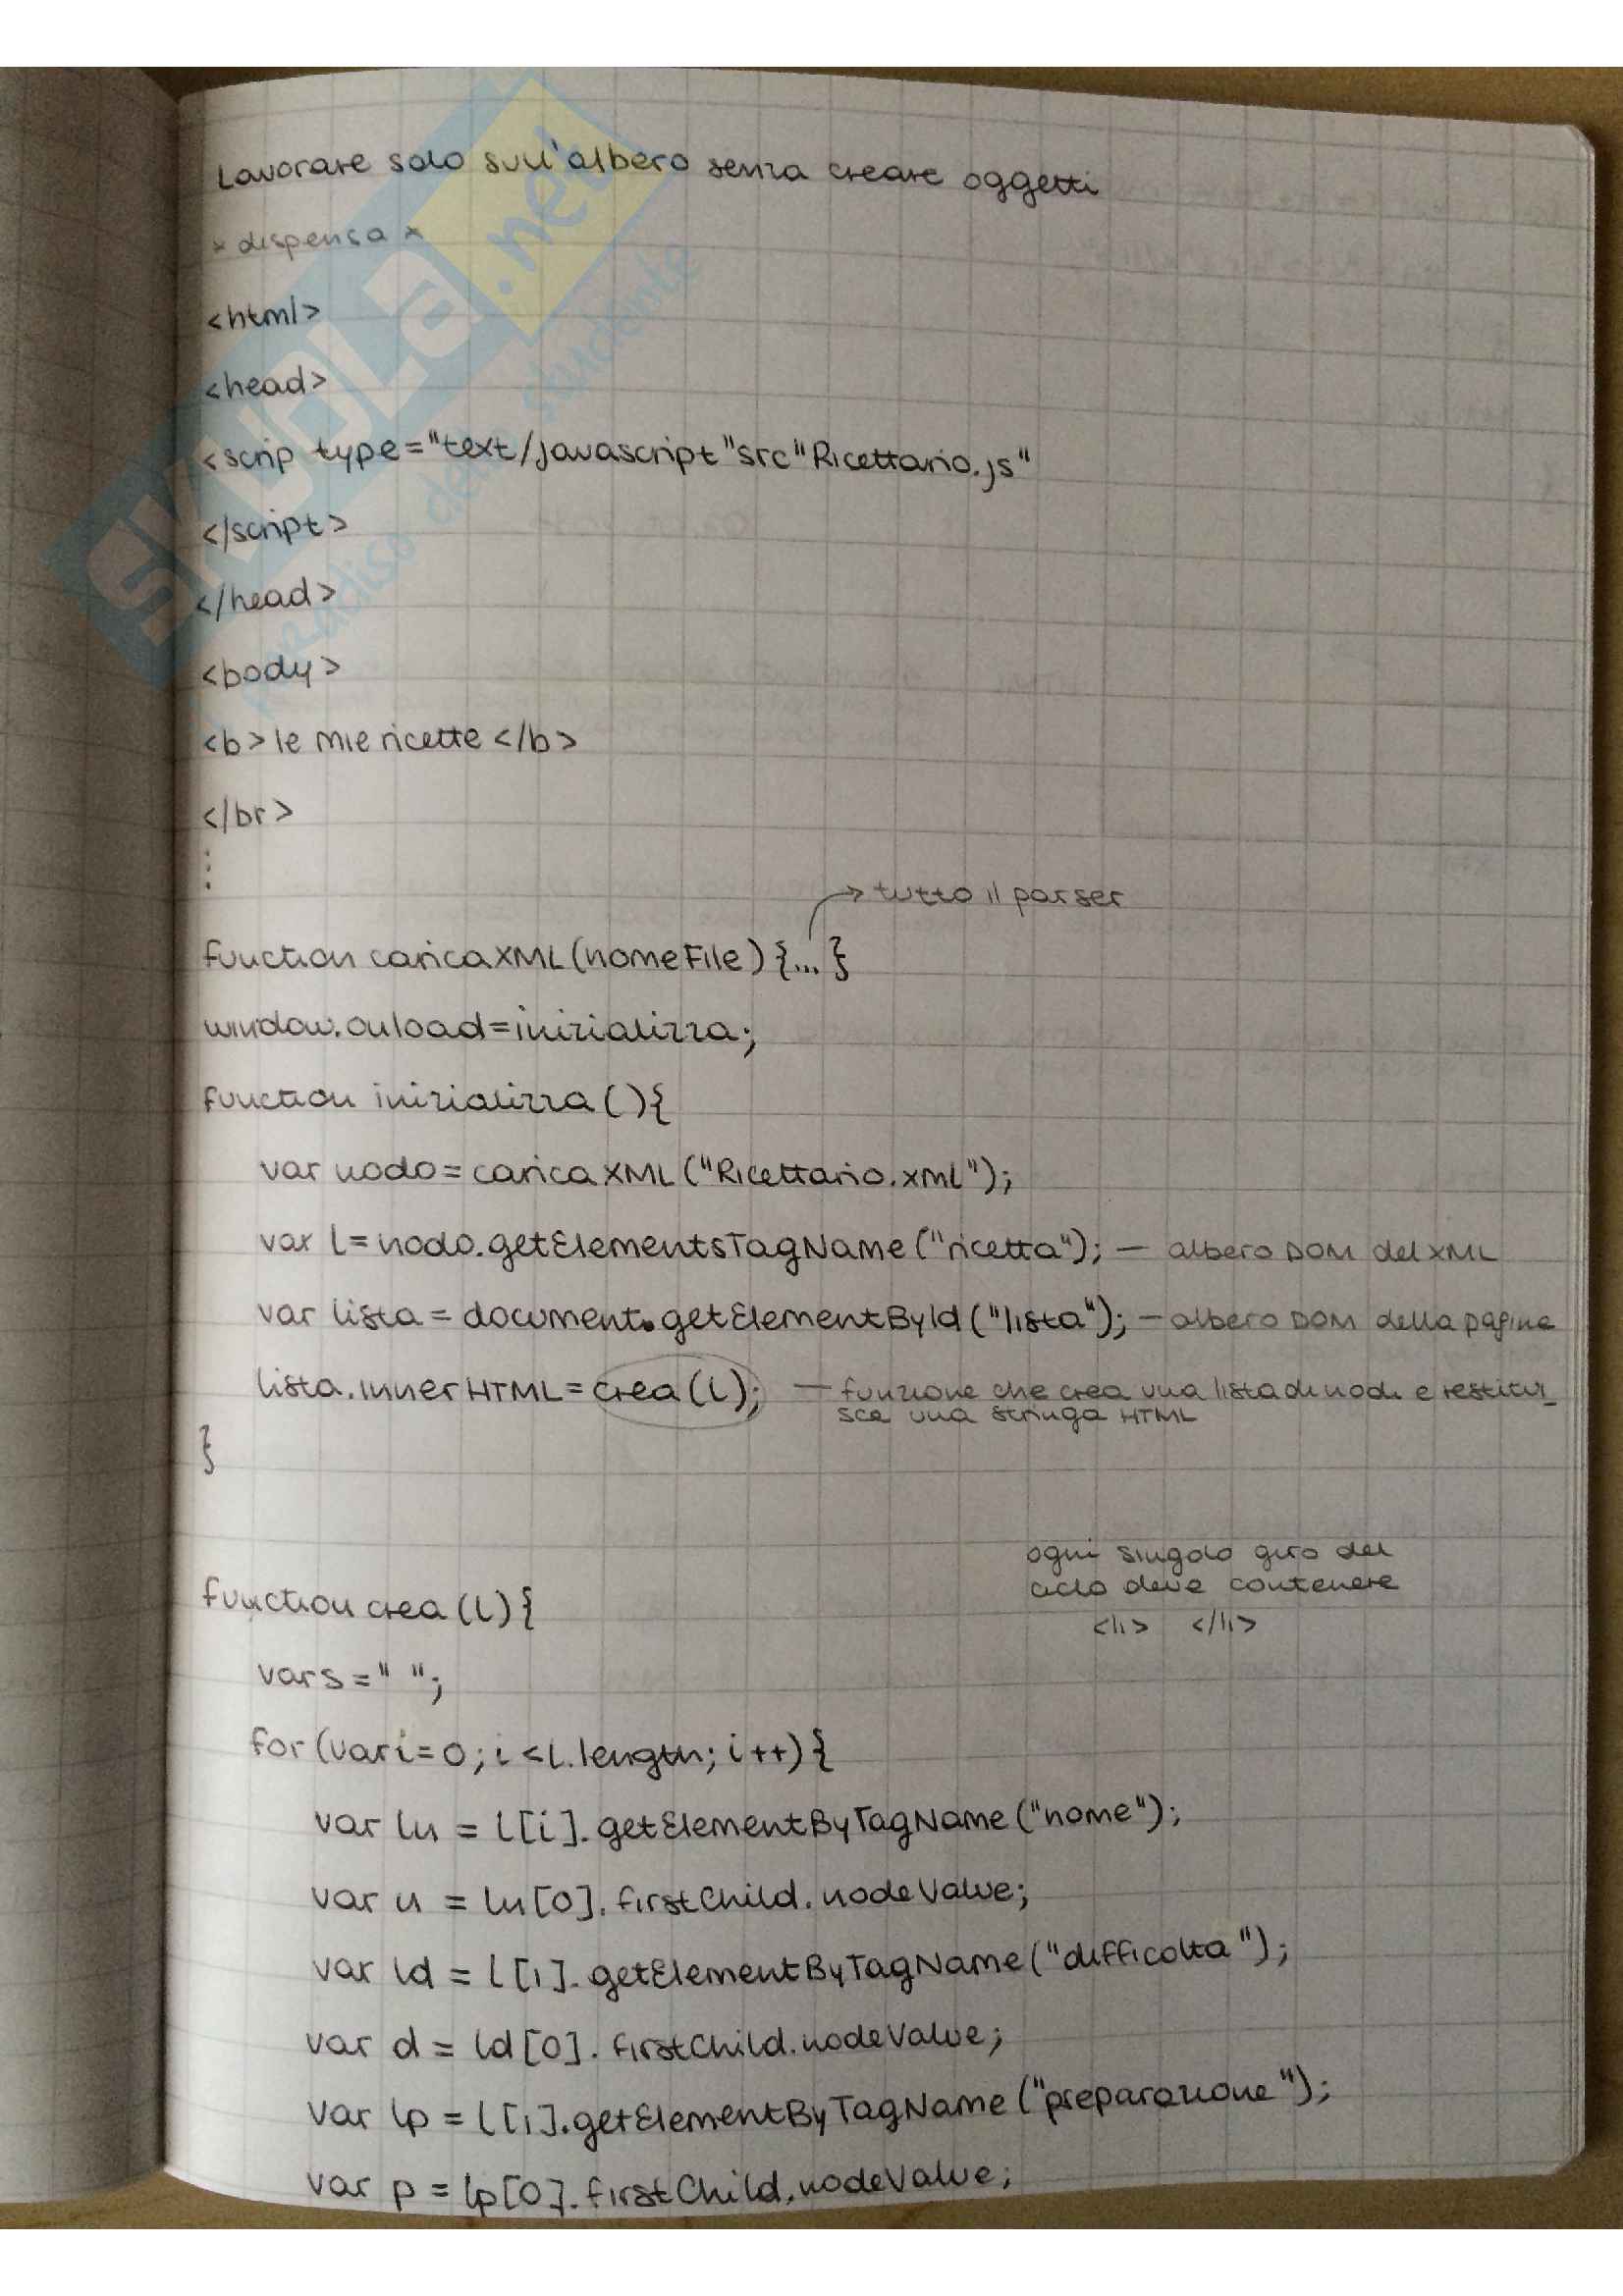 Lavorare solo sull'albero senza creare oggetti
* dispensa *
<html>
<head>
<scrip type="text/javascript"src"Ricettario.js"
</script>
</head>
<body>
<b>le mie ricette</b>
</br>
⋮
→ tutto il parser
function caricaXML(nomeFile){...}
window.onload=inizializza;
function inizializza(){
var nodo=caricaXML("Ricettario.xml");
var l=nodo.getElementsTagName("ricetta"); — albero DOM del XML
var lista = document.getElementById("lista"); — albero DOM della pagina
lista.innerHTML=crea(l); — funzione che crea una lista di nodi e restitui_
sce una stringa HTML
}
ogni singolo giro del
ciclo deve contenere
<li> </li>
function crea(l){
var s=" ";
for(var i=0;i<l.length;i++){
var ln = l[i].getElementByTagName("nome");
var n = ln[0].firstChild.nodeValue;
var ld = l[i].getElementByTagName("difficolta");
var d = ld[0].firstChild.nodeValue;
var lp = l[i].getElementByTagName("preparazione");
var p = lp[0].firstChild.nodeValue;
SKUOLA.net
il paradiso dello studente